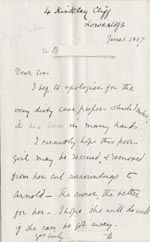 4 Kirkley Cliff
Lowestoft
June 1. 1897
Dear Sir
I beg to apologise for the
very dirty case paper
in many hands
I earnestly hope this poor
girl may be rescued, & removed
from her evil surroundings to
Arnold - The sooner the better
for her. I hope she will do well
if she can be got away.